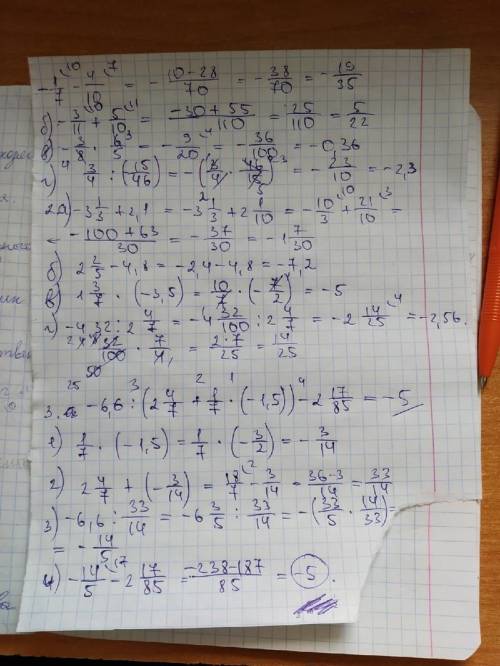 -1/7 - 4/10 = - 10-28/70 = - 38/70 = - 19/35
б) - 3/11 + 5/10 = -30+55/110 = 25/110 = 5/22
в) - 3/8 · 6/5 = - 9/20 = - 36/100 = -0,36
г) 3/4 : (15/46) = -( · ) = - 23/10 = -2,3
2а) -3 1/3 + 2,1 = -3 1/3 + 2 1/10 = - 10/3 + 21/10 =
= -100+63/30 = - 37/30 = -1 7/30
б) 2 2/5 - 4,8 = -2,4 - 4,8 = -7,2
в) 1 3/7 · (-3,5) = 10/7 · (- 7/2) = -5
г) -4,32 : 2 4/7 = -4 32/100 : 2 4/7 = -2 14/25 = -2,56.
32/100 · 7/4 = 2·7/25 = 14/25
3. -6,6 : (2 4/7 + 1/7 · (-1,5)) - 2 17/85 = -5
1) 1/7 · (-1,5) = 1/7 · (- 3/2) = - 3/14
2) 2 4/7 + (- 3/14) = 18/7 - 3/14 = 36-3/14 = 33/14
3) -6,6 : 33/14 = -6 3/5 : 33/14 = -(33/5 · 14/33) =
= - 14/5
4) - 14/5 - 2 17/85 = -238-187/85 = -5.